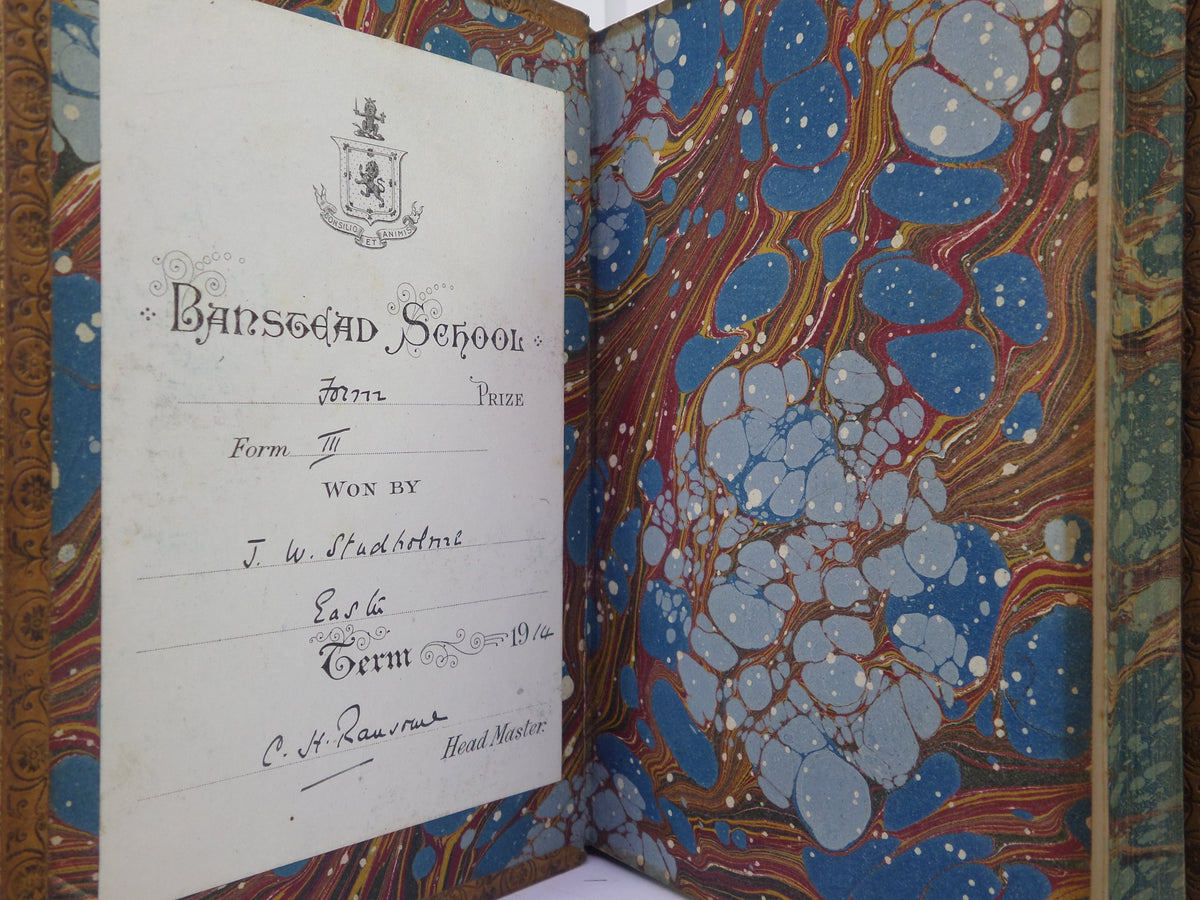 CONSILIO ET ANIMIS
BANSTEAD SCHOOL
Form PRIZE
Form III
WON BY
J. W. Studholme
Easter
Term 1914
C. H. Ransome
Head Master.